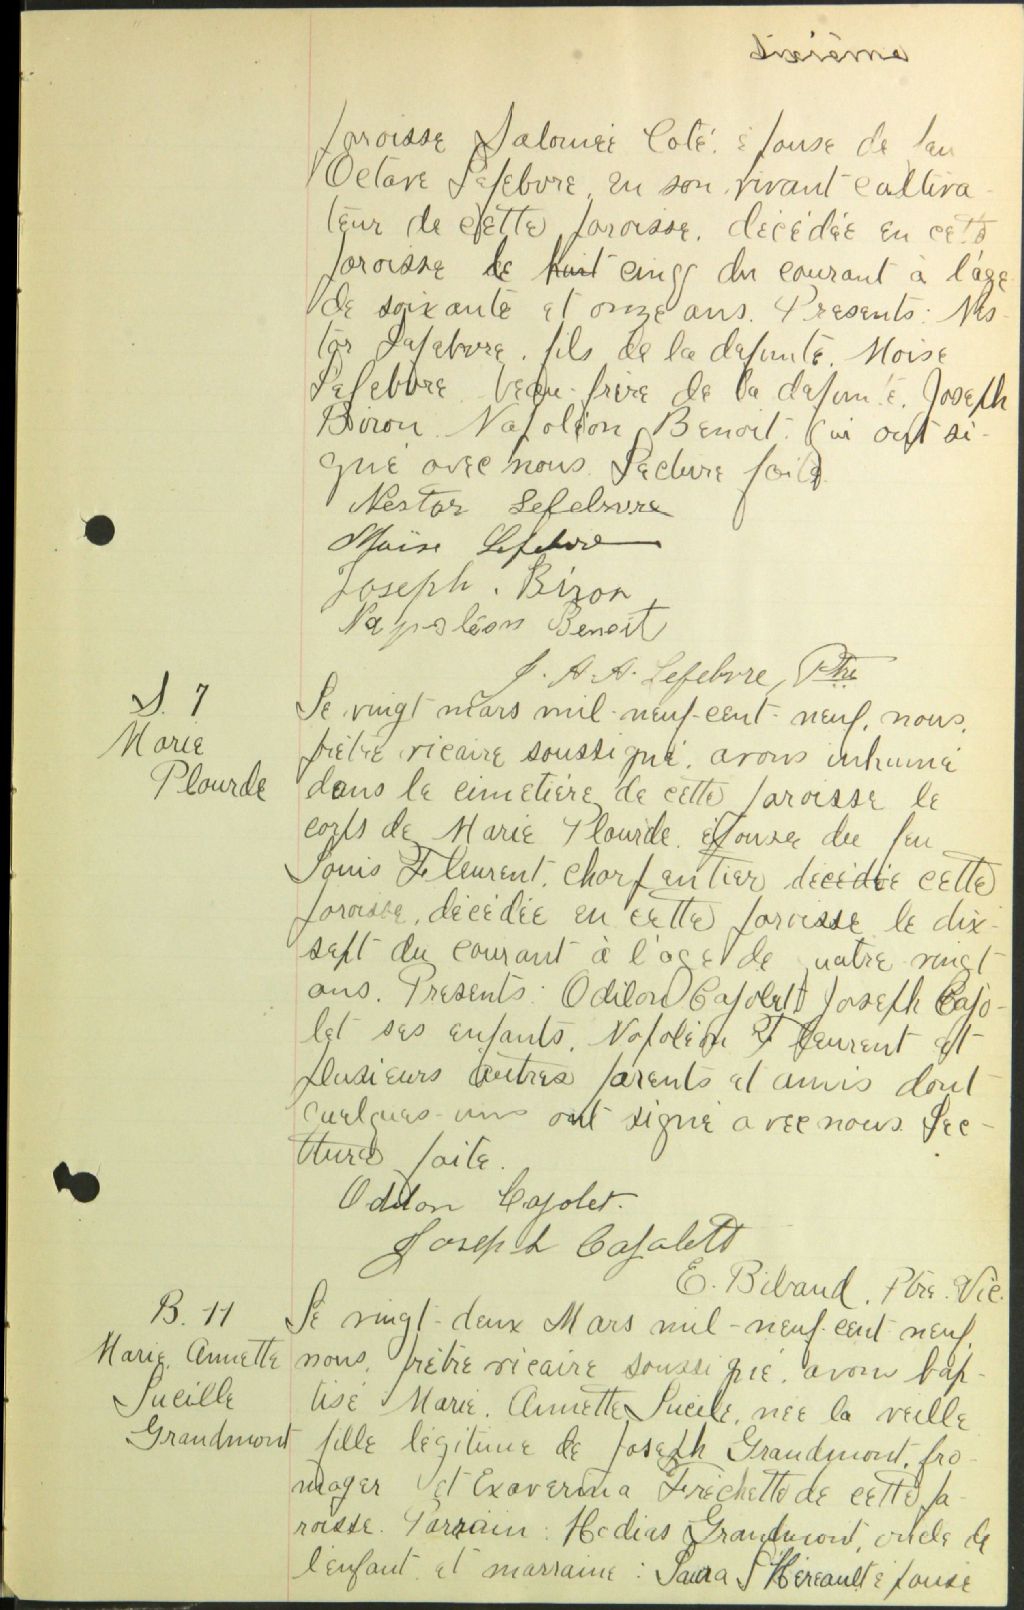 sixième
paroisse Salomée Coté. épouse de feu
Octave Lefebvre, en son vivant cultiva-
teur de cette paroisse, décédée en cette
paroisse le huit cinq du courant à l'age
de soixante et onze ans. Présents: Nes-
tor Lefebvre, fils de la defunte. Moise
Lefebvre beau-frère de la defunte. Joseph
Biron. Napoléon Benoit. qui ont si-
gné avec nous. Lecture faite
Nestor Lefebvre
Moïse Lefebvre
Joseph. Biron
Napoléon Benoit
J. A. A. Lefebvre, Ptre
S. 7
Marie
Plourde
Le vingt mars mil-neuf-cent-neuf, nous,
prêtre vicaire soussigné, avons inhumé
dans le cimetière de cette paroisse le
corps de Marie Plourde, épouse de feu
Louis Fleurent, charpentier décédée cette
paroisse, décédée en cette paroisse le dix-
sept du courant à l'age de quatre-vingt
ans. Présents: Odilon Cajolet Joseph Cajo-
let ses enfants, Napoléon Fleurent et
plusieurs autres parents et amis dont
quelques-uns ont signé avec nous. Lec-
ture faite.
Odilon Cajolet.
Joseph Cajolett
E. Bibaud, Ptre. Vic.
B. 11
Marie, Annette
Lucille
Grandmont
Le vingt-deux Mars mil-neuf-cent neuf,
nous, prêtre vicaire soussigné, avons bap-
tisé Marie, Annette Lucile, née la veille
fille légitime de Joseph Grandmont, fro-
mager et Exaverina Fréchette de cette pa-
roisse. Parrain: Hedias Grandmont, oncle de
l'enfant et marraine: Laura L'Héreault épouse